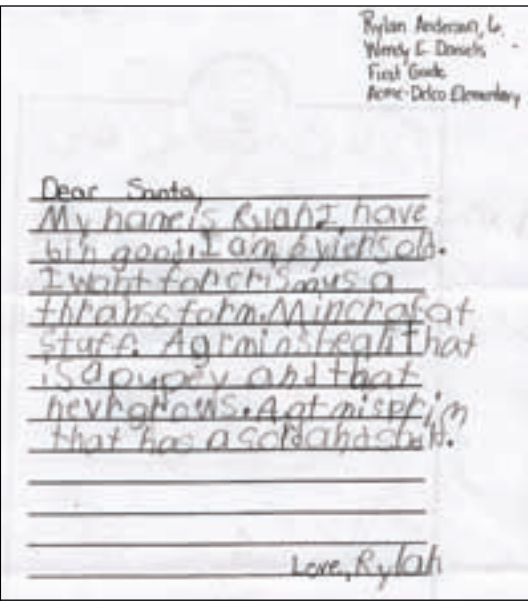 Rylan Anderson, 6
Wendy E. Daniels
First Grade
Acme-Delco Elementary
Dear Santa,
My name is Rylan I have
bin good. I am 6 yiers old.
I want for crismus a
thransform. Mincrafat
stuff. A grminshegh that
is a pupey and that
nevr grows. A optmisprim
that has a sord and
Love, Rylan